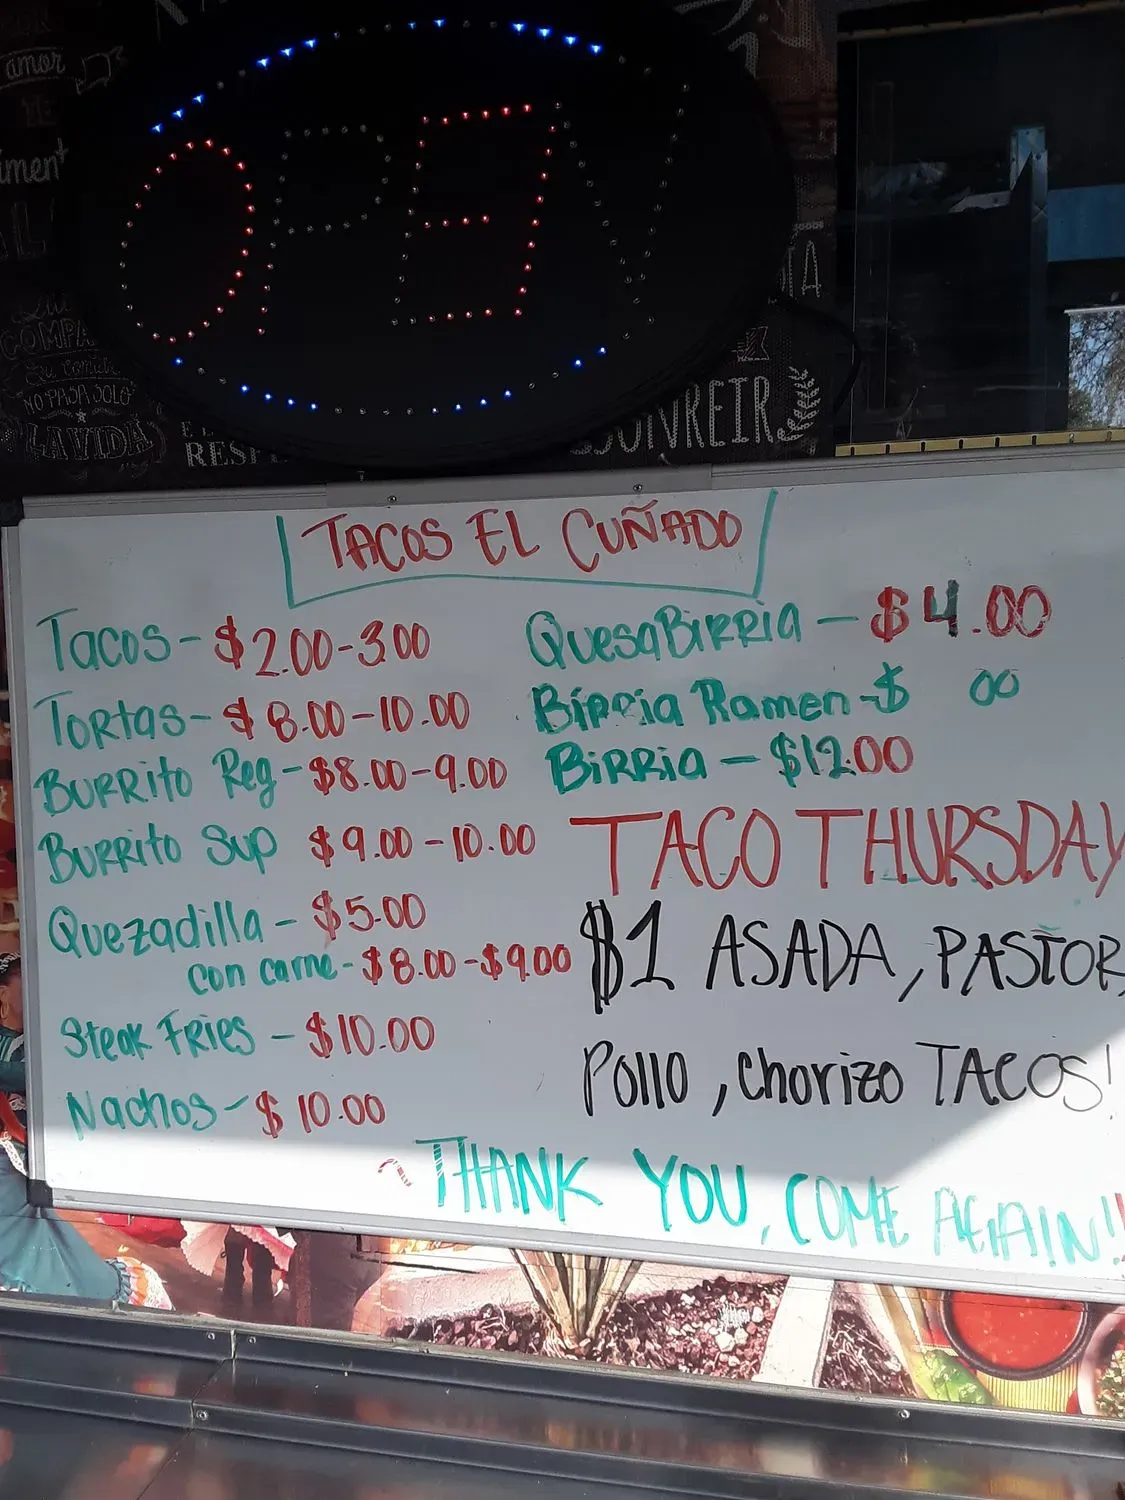 amor
TE
OPEN
COMPA
NO PASA SOLO
LA VIDA
TACOS EL CUÑADO
Tacos - $2.00-3.00
Tortas - $8.00-10.00
Burrito Reg - $8.00-9.00
Burrito Sup $9.00-10.00
Quezadilla - $5.00
con carne - $8.00-$9.00
Steak Fries - $10.00
Nachos - $10.00
QuesaBirria - $4.00
Birria Ramen - $ 00
Birria - $12.00
TACO THURSDAY
$1 ASADA, PASTOR,
Pollo, Chorizo TACOS!
THANK YOU, COME AGAIN!!